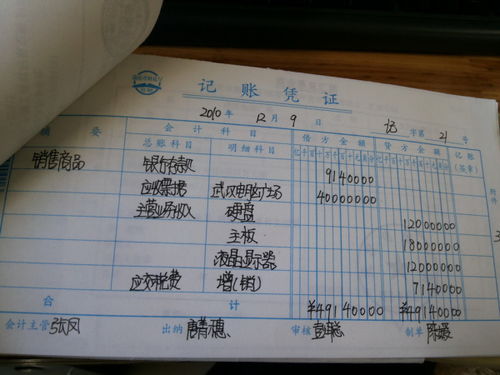 记账凭证
2010年12月9日 记字第21号
摘要 会计科目 借方金额 贷方金额 记账(签章)
总账科目 明细科目
销售商品 银行存款 9140000
应收票据 40000000
主营业务收入 硬盘 12000000
主板 18000000
液晶显示器 12000000
应交税费 增(销) 7140000
合计 ¥49140000 ¥49140000
会计主管 张凤 出纳 审核 制单